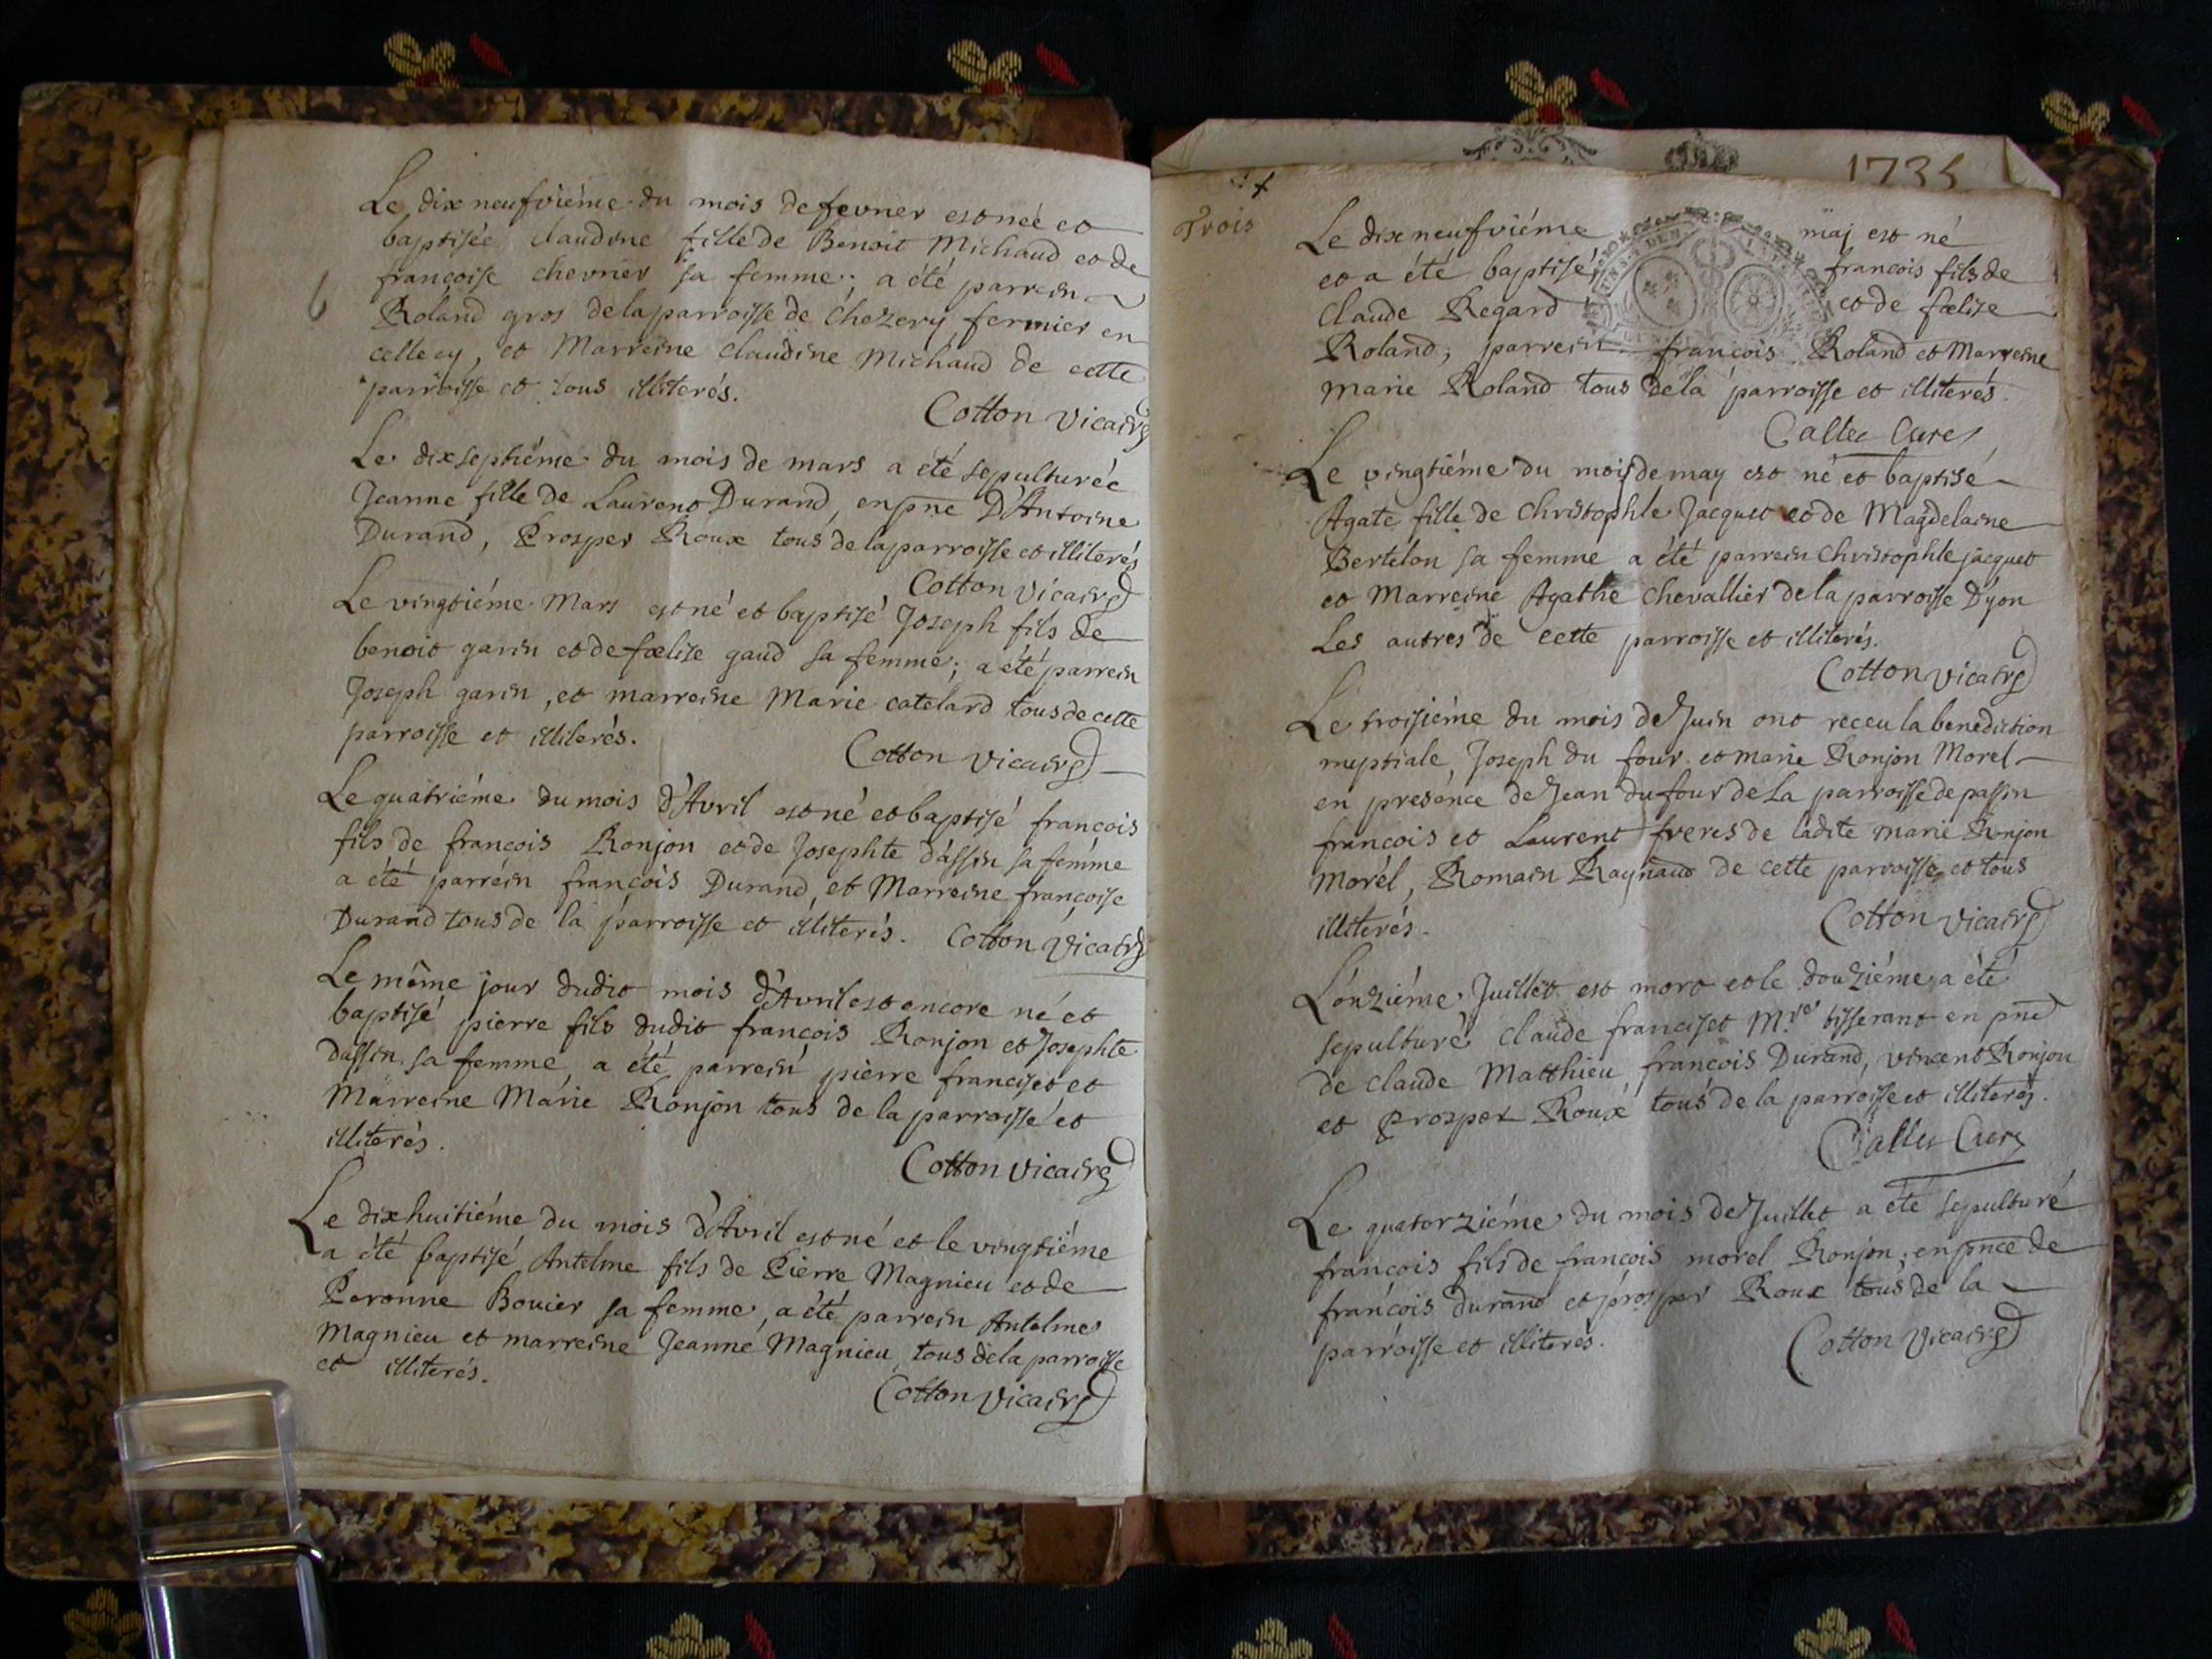 Le dix neufviéme du mois de fevrier est neé et
baptisée claudine fille de Benoit Michaud et de
françoise chevrier sa femme; a été parrein
Roland gros de la parroisse de chezery fermier en
celle cy, et Marreine claudine Michaud de cette
parroisse et tous illiterés.
Cotton vicaire
Le dixseptiéme du mois de mars a été sepulturée
Jeanne fille de Laurent Durand, en pnce D'Antoine
Durand, Prosper Roux tous de la parroisse et illiterés
Cotton vicaire
Le vingtiéme Mars est né et baptisé Joseph fils de
benoit garin et de fœlise gaud sa femme; a été parrein
Joseph garin, et marreine Marie catelard tous de cette
parroisse et illiterés.
Cotton vicaire
Le quatriéme du mois d'Avril est né et baptisé francois
fils de francois Ronjon et de Josephte dassin sa femme
a été parrein françois Durand, et Marreine françoise
Durand tous de la parroisse et illiterés. Cotton vicaire
Le même jour dudit mois d'Avril est encore né et
baptisé pierre fils dudit françois Ronjon et Josephte
dassin sa femme a été parrein pierre franciset et
Marreine Marie Ronjon tous de la parroisse et
illiterés.
Cotton vicaire
Le dixhuitiéme du mois d'Avril est né et le vingtiéme
a été baptisé Antelme fils de Pierre Magnieu et de
Peronne Bouier sa femme, a été parrein Antelme
Magnieu et marreine Jeanne Magnieu, tous de la parroisse
et illiterés.
Cotton vicaire
1735
Trois
Le dix neufviéme maj est né
et a été baptisé francois fils de
Claude Regard et de fœlise
Roland, parrein françois Roland et Marreine
marie Roland tous de la parroisse et illiterés.
Callet Curé
Le vingtiéme du mois de may est né et baptisé
Agate fille de Christophle Jacquet et de Magdelaine
Bertelon sa femme a été parrein Christophle jacquet
et Marreine Agathe Chevallier de la parroisse D'yon
Les autres de cette parroisse et illiterés.
Cotton vicaire
Le troisiéme du mois de Juin ont receu la benediction
nuptiale, Joseph du four et marie Ronjon Morel
en presence de Jean du four de La parroisse de passin
françois et Laurent freres de ladite marie Ronjon
Morél, Romain Raynaud de cette parroisse et tous
illiterés.
Cotton vicaire
L'ónziéme Juillet est mort et le douziéme a été
sepulturé Claude franciset M.re tisserant en pnce
de Claude Matthieu françois Durand, vincent Ronjon
et Prosper Roux tous de la parroisse et illiterés.
Callet Curé
Le quatorziéme du mois de Juillet a été sepulturé
françois fils de françois morel Ronjon, en pnce de
françois durand et prosper Roux tous de la
parroisse et illiterés.
Cotton vicaire